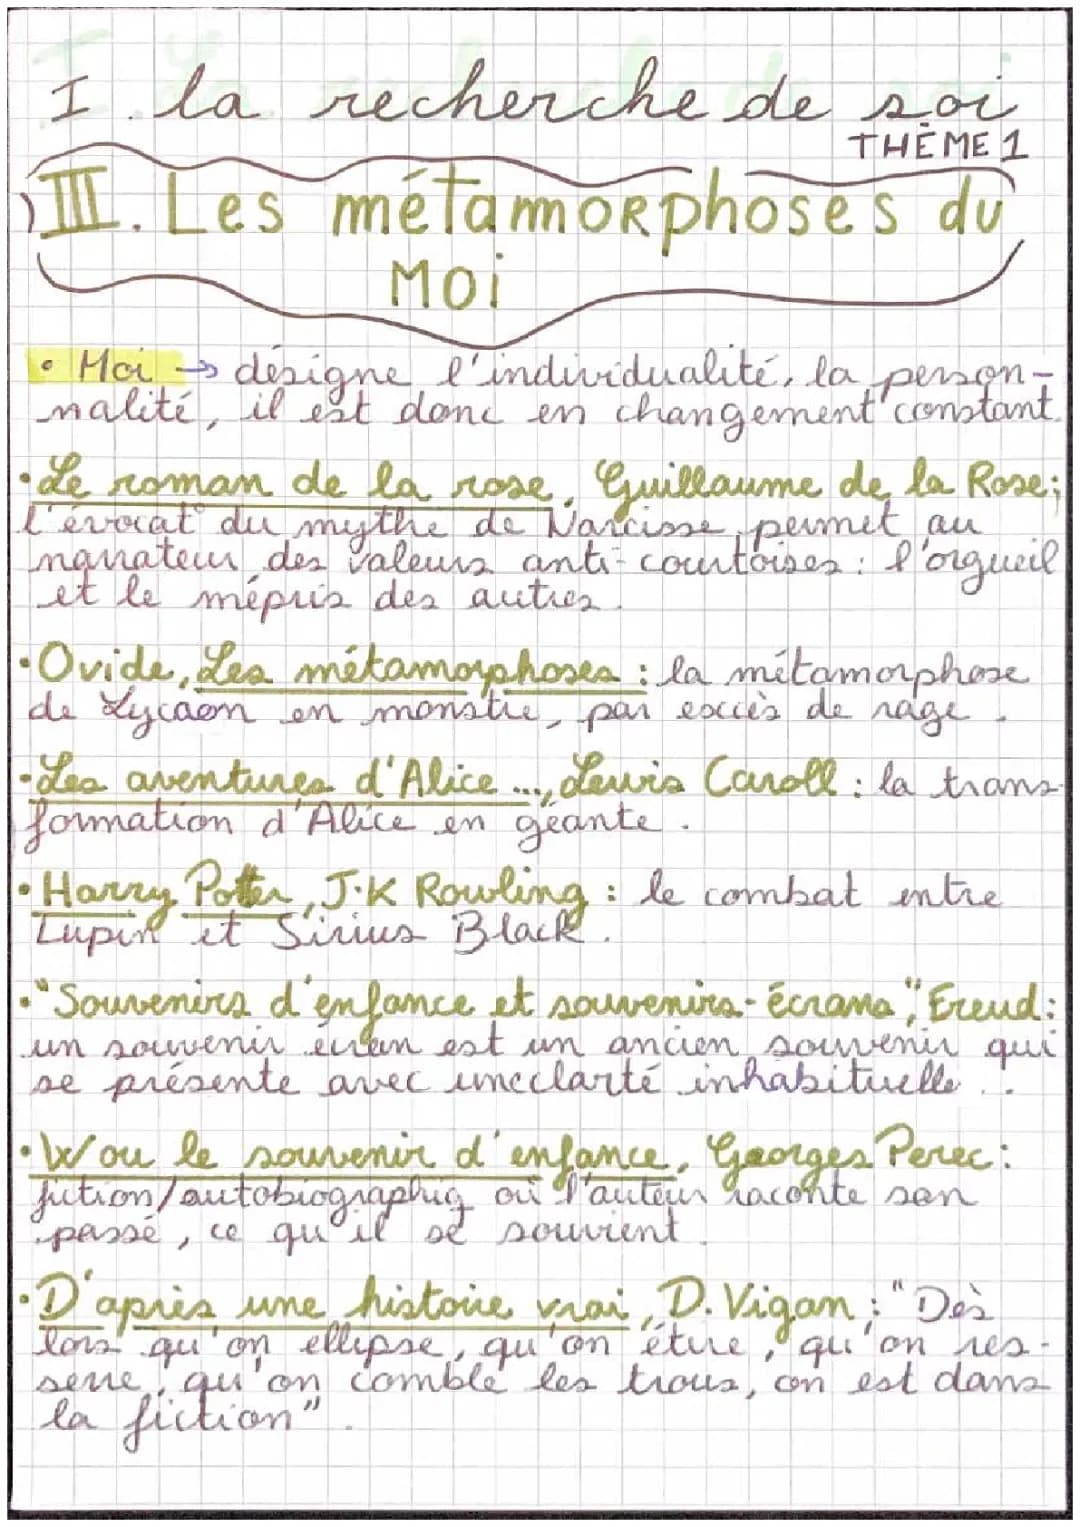 I. la recherche de soi
THÈME 1
III. Les métamorphoses du
Moi
• Moi → désigne l'individualité, la person-
nalité, il est donc en changement constant.
• Le roman de la rose, Guillaume de la Rose;
l'évocat° du mythe de Narcisse permet au
narrateur des valeurs anti-courtoises : l'orgueil
et le mépris des autres.
• Ovide, Les métamorphoses : la métamorphose
de Lycaon en monstre, par excès de rage.
• Les aventures d'Alice ..., Lewis Caroll : la trans-
formation d'Alice en géante.
• Harry Potter, J.K Rowling : le combat entre
Lupin et Sirius Black.
• "Souvenirs d'enfance et souvenirs-écrans", Freud :
un souvenir écran est un ancien souvenir qui
se présente avec une clarté inhabituelle...
• W ou le souvenir d'enfance, Georges Perec :
fiction/autobiographiq où l'auteur raconte son
passé, ce qu'il se souvient.
• D'après une histoire vrai, D. Vigan : "Dès
lors qu'on ellipse, qu'on étire, qu'on res-
serre, qu'on comble les trous, on est dans
la fiction".